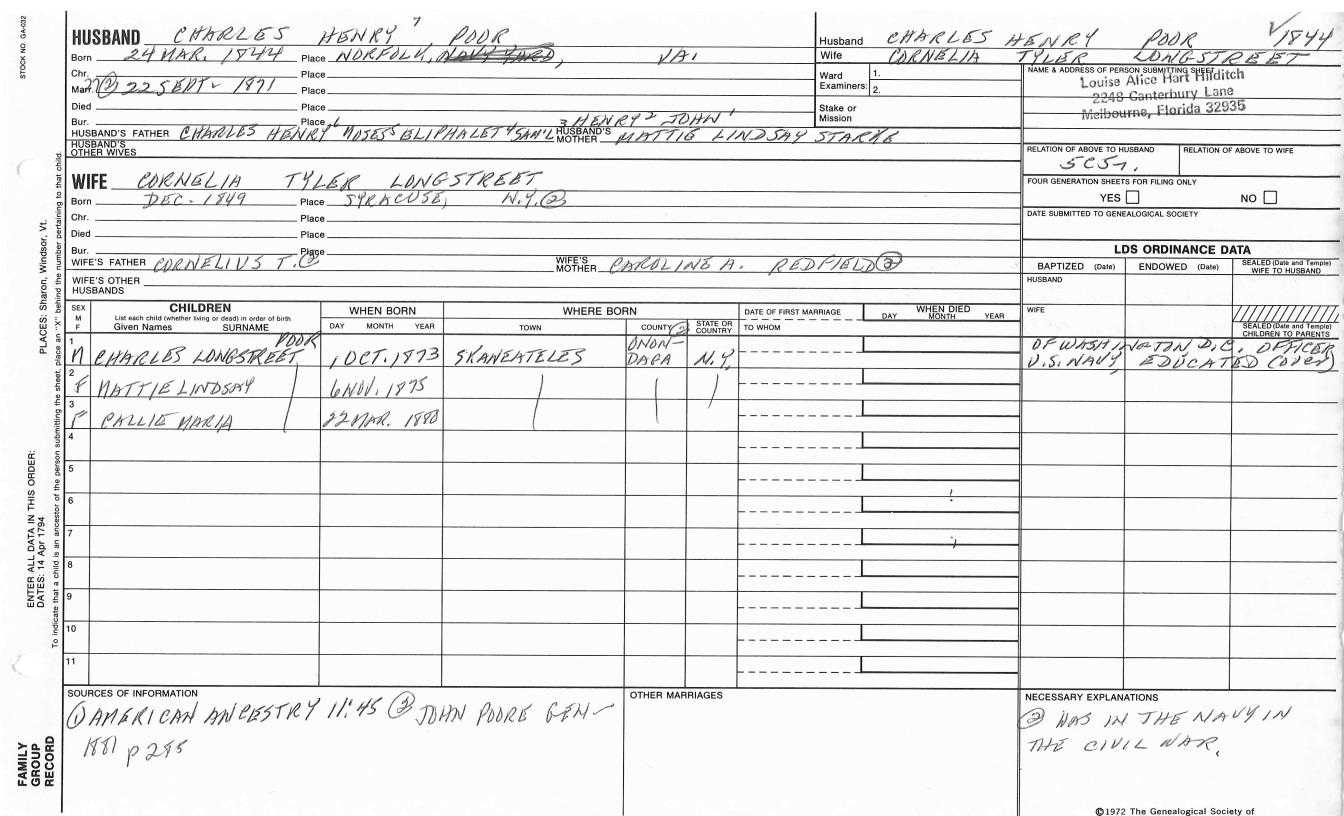 STOCK NO. GA-032
HUSBAND CHARLES HENRY 7 POOR
Born 24 MAR. 1844 Place NORFOLK, NAVY YARD, VA.
Chr. Place
Marr. (2) 22 SEPT - 1871 Place
Died Place
Bur. Place
HUSBAND'S FATHER CHARLES HENRY 6 MOSES 5 ELIPHALET 4 SAM'L 3 HENRY 2 JOHN 1 HUSBAND'S MOTHER MATTIE LINDSAY STARKE
HUSBAND'S OTHER WIVES
WIFE CORNELIA TYLER LONGSTREET
Born DEC - 1849 Place SYRACUSE, N.Y. (2)
Chr. Place
Died Place
Bur. Place
WIFE'S FATHER CORNELIUS T. (2) WIFE'S MOTHER CAROLINE A. REDFIELD (2)
WIFE'S OTHER HUSBANDS
Husband CHARLES HENRY POOR ✓ 1844
Wife CORNELIA TYLER LONGSTREET
Ward Examiners: 1.
2.
Stake or Mission
NAME & ADDRESS OF PERSON SUBMITTING SHEET
Louise Alice Hart Hilditch
2248 Canterbury Lane
Melbourne, Florida 32935
RELATION OF ABOVE TO HUSBAND RELATION OF ABOVE TO WIFE
FOUR GENERATION SHEETS FOR FILING ONLY
YES NO
DATE SUBMITTED TO GENEALOGICAL SOCIETY
LDS ORDINANCE DATA
BAPTIZED (Date) ENDOWED (Date) SEALED (Date and Temple) WIFE TO HUSBAND
HUSBAND
WIFE
SEALED (Date and Temple) CHILDREN TO PARENTS
SEX M F CHILDREN WHEN BORN WHERE BORN DATE OF FIRST MARRIAGE WHEN DIED
List each child (whether living or dead) in order of birth
Given Names SURNAME DAY MONTH YEAR TOWN COUNTY (2) STATE OR COUNTRY TO WHOM DAY MONTH YEAR
1 M CHARLES LONGSTREET POOR 1 OCT. 1873 SKANEATELES ONON-DAGA N.Y. OF WASHINGTON D.C. OFFICER
U.S. NAVY, EDUCATED (over)
2 F MATTIE LINDSAY 6 NOV. 1875
3 F CALLIE MARIA 22 MAR. 1880
4
5
6
7
8
9
10
11
SOURCES OF INFORMATION OTHER MARRIAGES NECESSARY EXPLANATIONS
(1) AMERICAN ANCESTRY 11:45 (2) JOHN POORE GEN -
1881 p 255
(2) WAS IN THE NAVY IN
THE CIVIL WAR.
©1972 The Genealogical Society of
ENTER ALL DATA IN THIS ORDER:
DATES: 14 Apr 1794 PLACES: Sharon, Windsor, Vt.
To indicate that a child is an ancestor of the person submitting the sheet, place an "X" behind the number pertaining to that child.
FAMILY
GROUP
RECORD